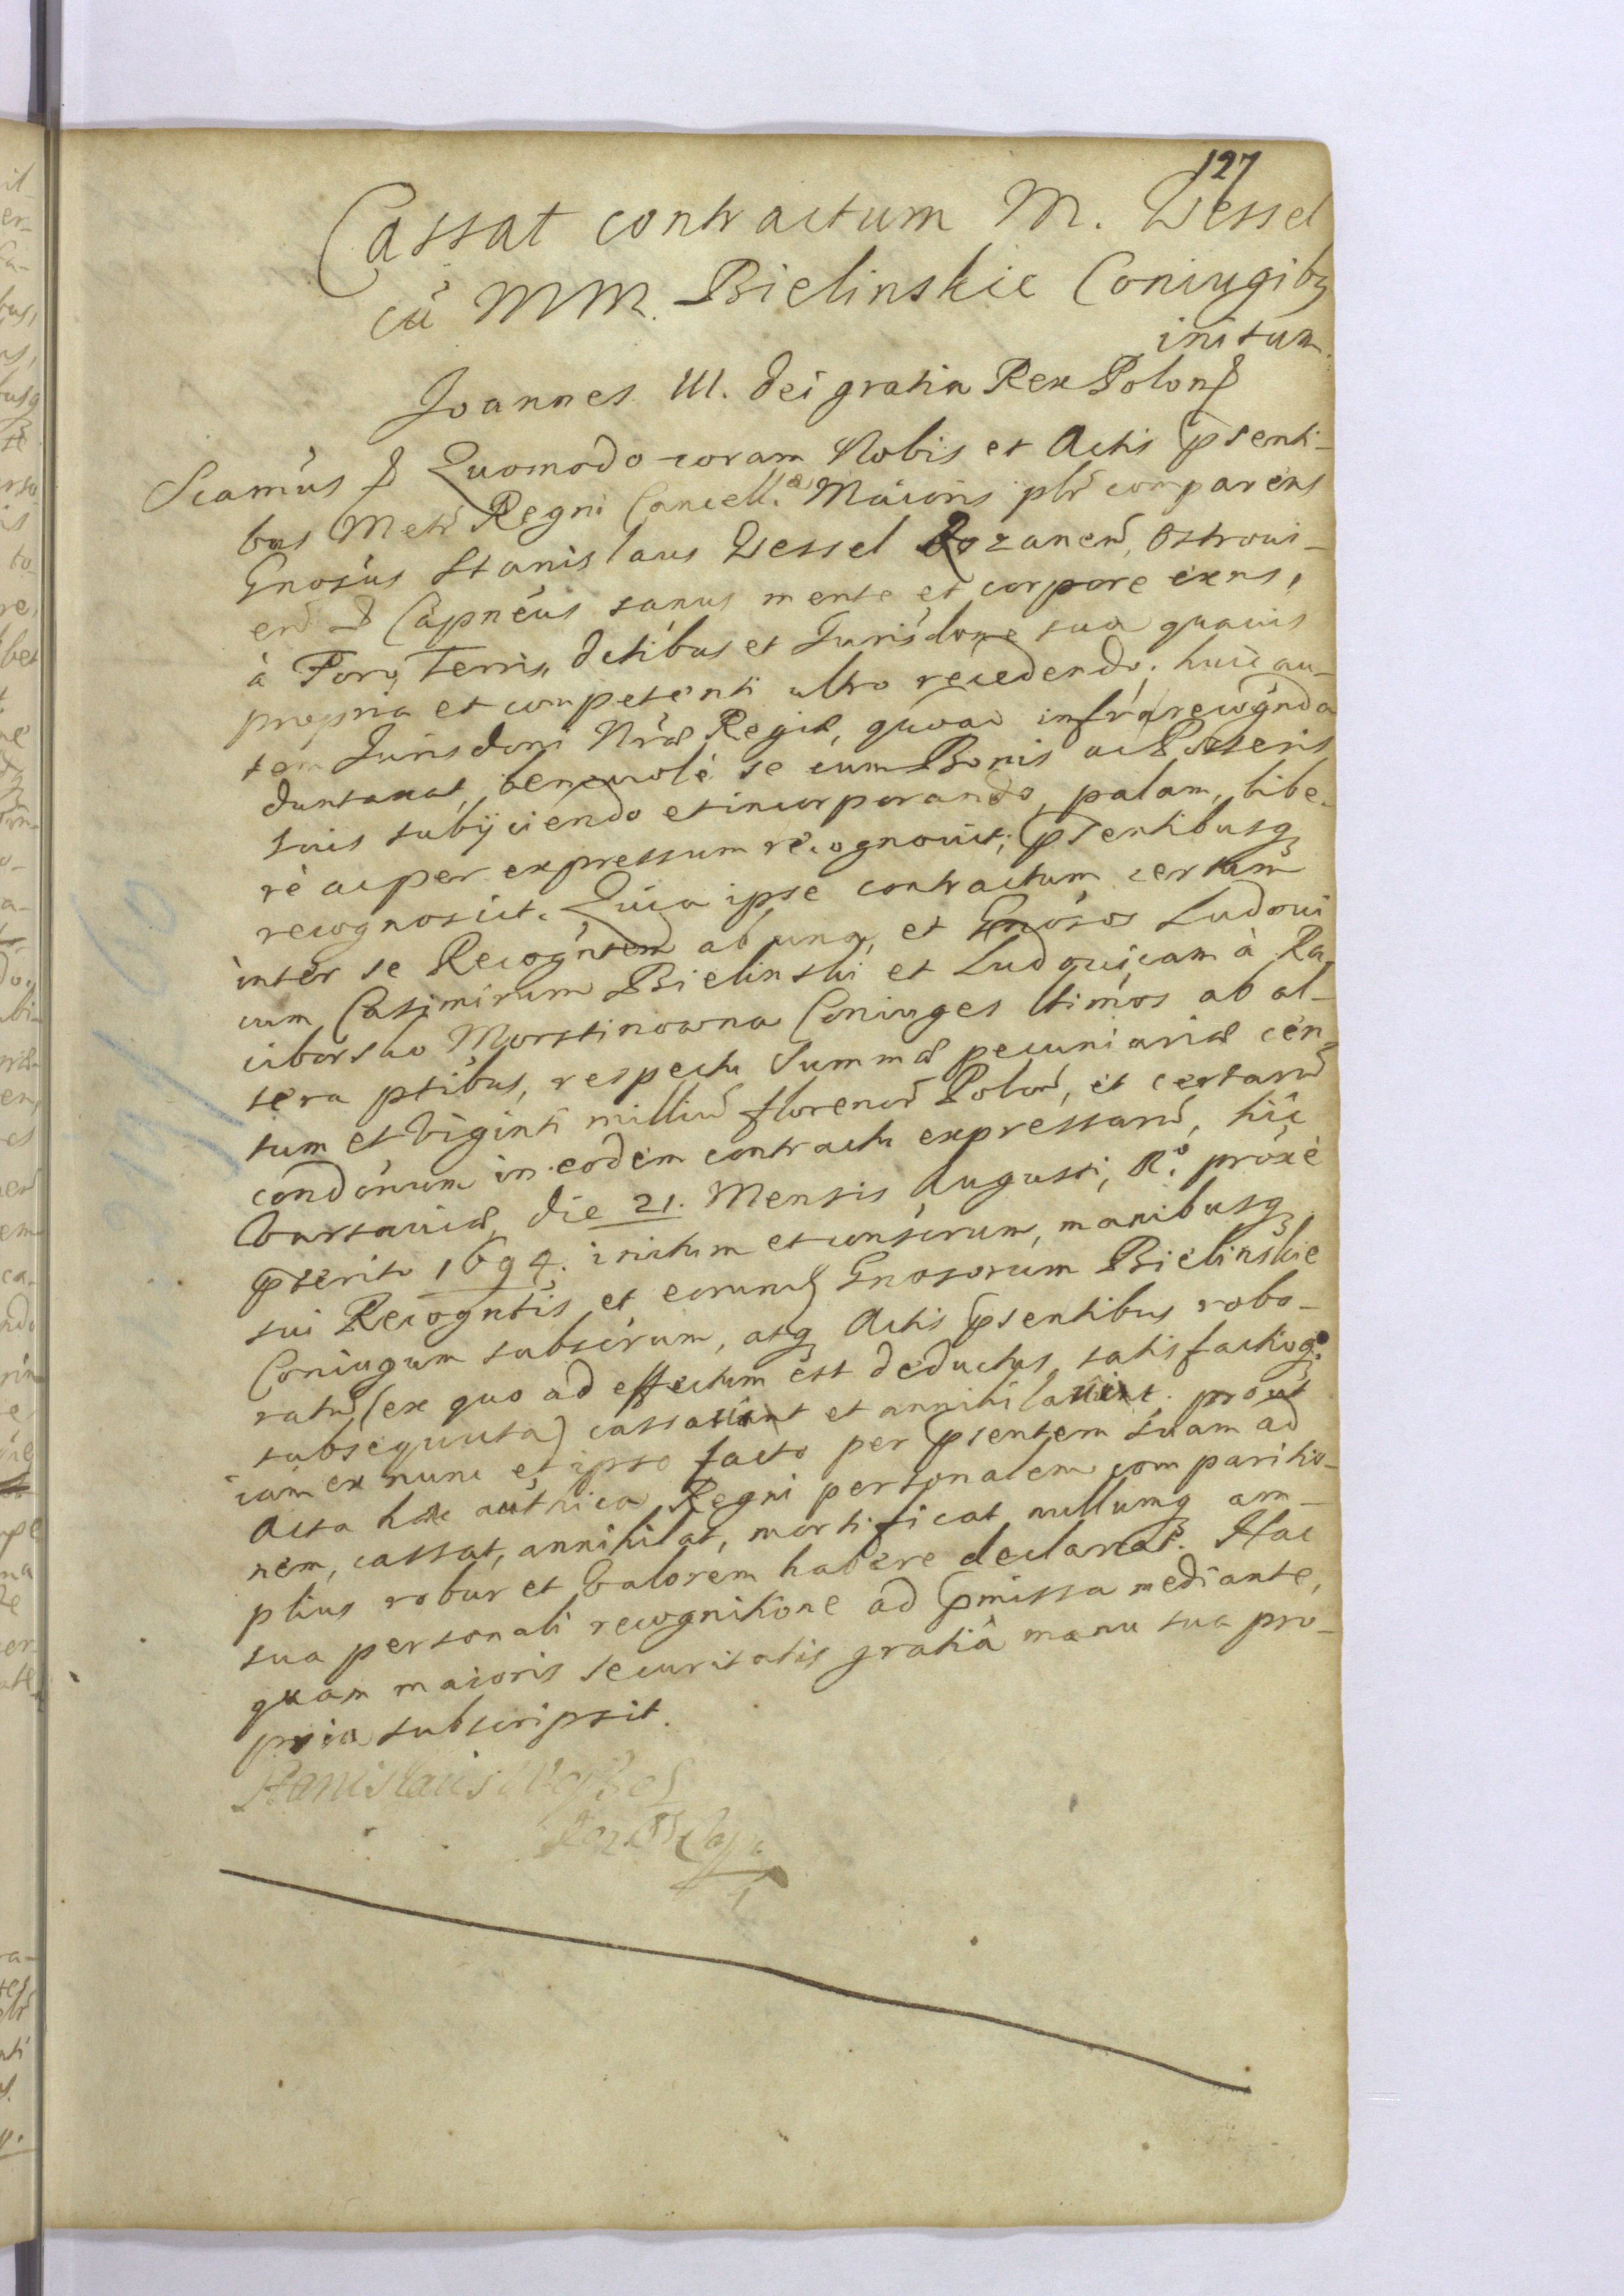 127
Cassat contractum M. Wessel
cũ MM. Bielinskie Coniugibꝫ
initum.
Joannes III. Dei gratia Rex Polon
Scamus Quomodo coram Nobis et Actis pṡenti-
bus Metr Regni Cancell. Maioris plr comparens
Gnosus Stanislaus Wessel Rozanen, Ostroui-
en Capneus sanus mente et corpore exns,
à Foro, Terris, dctibus et Jurisdone sua quavis
propria et competenti ultro recedendo; huic au-
tem Jurisdoni Nræ Regiæ, quoad infra recognda
duntaxat, benevole se cum Bonis ac Posteris
suis subijciendo et incorporando, palam, libe-
rè ac per expressum recognovit; psentibusqꝫ
recognoscit. Quia ipse contractum certum
inter se Recogntem ab una, et Gnosos Ludovi
cum Casimirum Bielinski et Ludovicam à Ra-
ciborsko Morstinowna Coniuges ltimos ab al-
tera ptibus, respectu Summæ pecuniariæ cen-
tum et Viginti milliũ florenor Polon, et certarũ
condonum in eodem contractu expressarũ, hic
Varsaviæ, die 21. Mensis Augusti, Ao proxè
pterito 1694. initum et conscrum, manibusqꝫ
sui Recogntis, et eorund Gnosorum Bielinskie
Coniugum subscrum, atqꝫ Actis psentibus robo-
ratũ (ex quo ad effectum est deductus, satisfactioqꝫ
subsequuta) cassavit et annihilavit. prout
iam ex nunc et ipso facto per psentem suam ad
Acta hæc authica Regni personalem comparitio-
nem, cassat, annihilat, mortificat nullumqꝫ am-
plius robur et Valorem habere declarat. Hac
sua personali recognitione ad pmissa mediante,
quam maioris securitatis gratiâ manu sua pro-
pria subscripsit.
Stanislaus Wessel